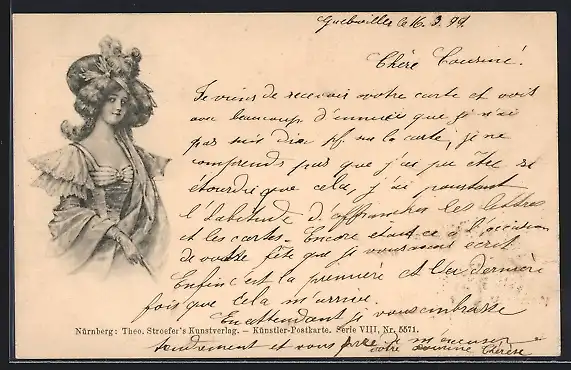 Guebwiller le 16. 3. 99.
Chère Cousine!
Je viens de recevoir votre carte et vois
avec beaucoup d'ennuie que je n'ai
pas mis dix pf. sur la carte, je ne
comprends pas que j'ai pu être si
étourdie que cela, j'ai pourtant
l'habitude d'affranchir les lettres
et les cartes. Encore étant ce à l'occasion
de votre fête que je vous avais écrit
Enfin c'est la première et la dernière
fois que cela m'arrive.
En attendant je vous embrasse
Nürnberg: Theo. Stroefer's Kunstverlag. – Künstler-Postkarte. Serie VIII, Nr. 5571.
tendrement et vous prie de m'excuser
votre cousine Thérèse